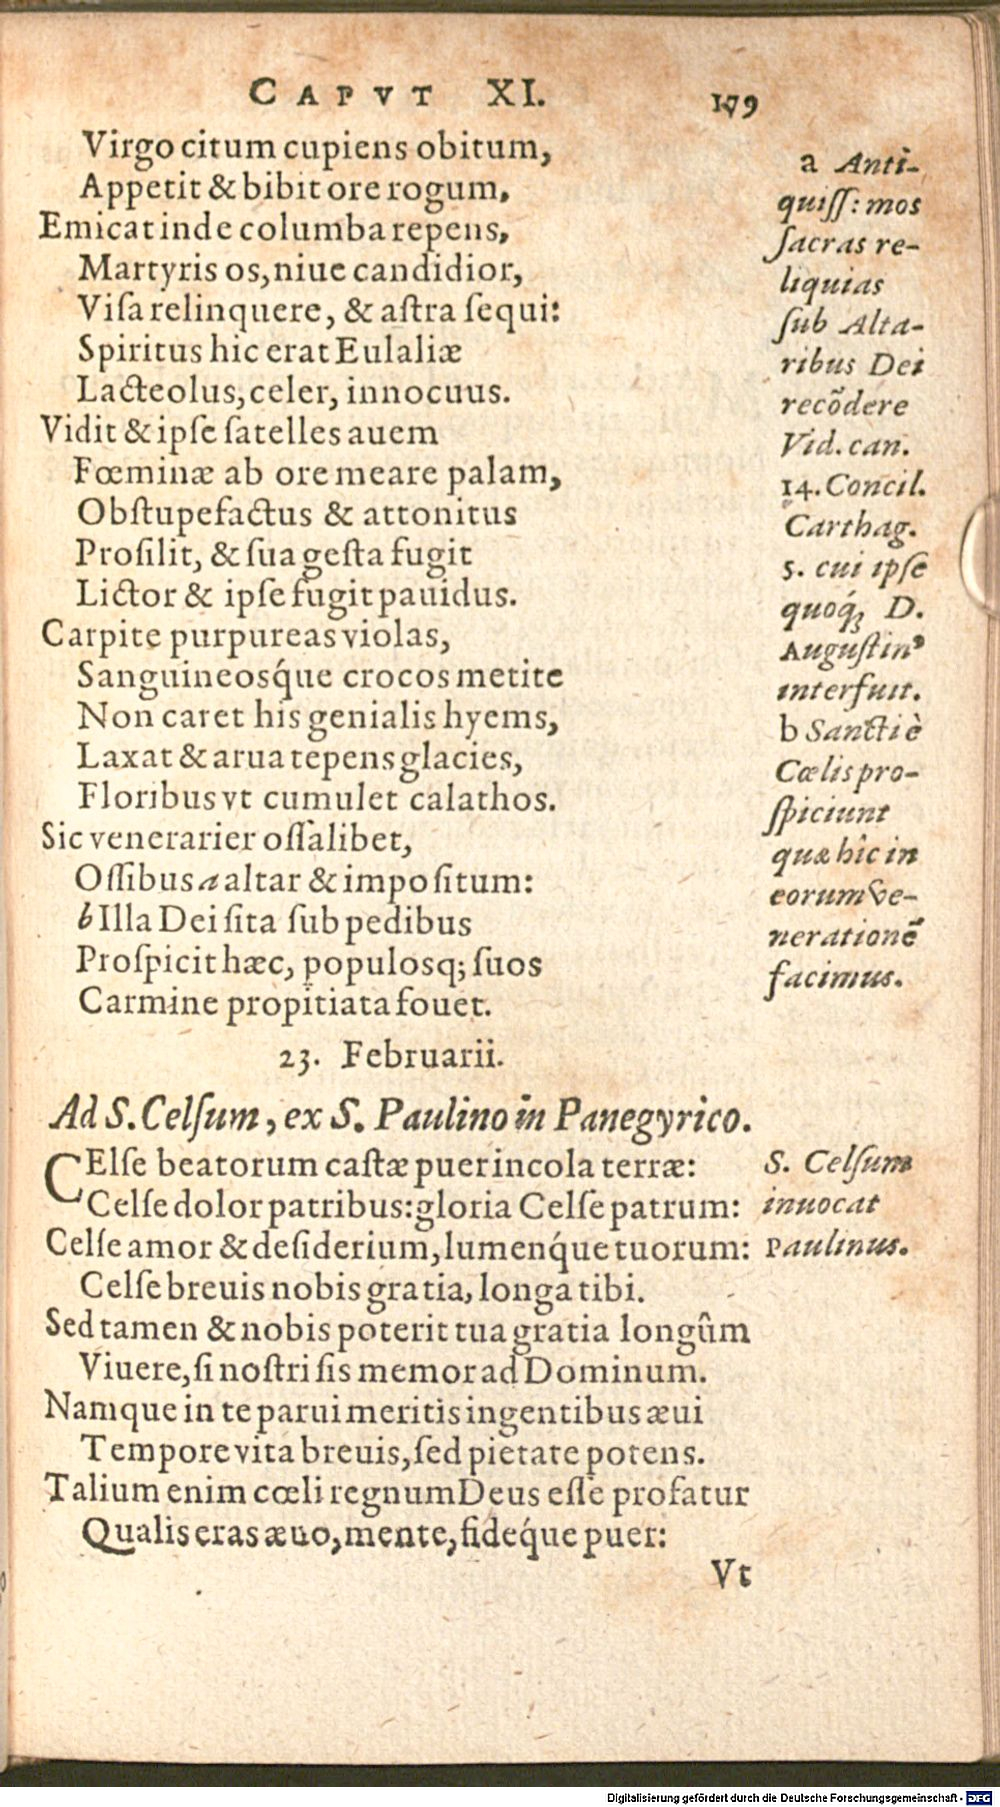 CAPVT XI. 179
Virgo citum cupiens obitum,
Appetit & bibit ore rogum,
Emicat inde columba repens,
Martyris os, niue candidior,
Viſa relinquere, & aſtra ſequi:
Spiritus hic erat Eulaliæ
Lacteolus, celer, innocuus.
Vidit & ipſe ſatelles auem
Fœminæ ab ore meare palam,
Obſtupefactus & attonitus
Proſilit, & ſua geſta fugit
Lictor & ipſe fugit pauidus.
Carpite purpureas violas,
Sanguineosq́ue crocos metite
Non caret his genialis hyems,
Laxat & arua tepens glacies,
Floribus vt cumulet calathos.
Sic venerarier oſſa libet,
Oſſibus a altar & impoſitum:
b Illa Dei ſita ſub pedibus
Proſpicit hæc, populosq; ſuos
Carmine propitiata fouet.
a Anti-
quiſſ: mos
ſacras re-
liquias
ſub Alta-
ribus Dei
recõdere
Vid. can.
14. Concil.
Carthag.
5. cui ipſe
quoq́; D.
Auguſtinꝰ
interfuit.
b Sancti è
Cœlis pro-
ſpiciunt
quæ hîc in
eorum ve-
nerationẽ
facimus.
23. Februarii.
Ad S. Celſum, ex S. Paulino in Panegyrico.
CElſe beatorum caſtæ puer incola terræ:
Celſe dolor patribus: gloria Celſe patrum:
Celſe amor & deſiderium, lumenq́ue tuorum:
Celſe breuis nobis gratia, longa tibi.
Sed tamen & nobis poterit tua gratia longûm
Viuere, ſi noſtri ſis memor ad Dominum.
Namque in te parui meritis ingentibus æui
Tempore vita breuis, ſed pietate potens.
Talium enim cœli regnum Deus eſſe profatur
Qualis eras æuo, mente, fideq́ue puer:
S. Celſum
inuocat
Paulinus.
Vt
Digitalisierung gefördert durch die Deutsche Forschungsgemeinschaft - DFG